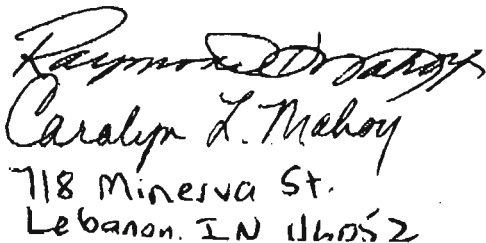 Raymond D. Mahoy
Caralyn L. Mahoy
718 Minerva St.
Lebanon, IN 46052